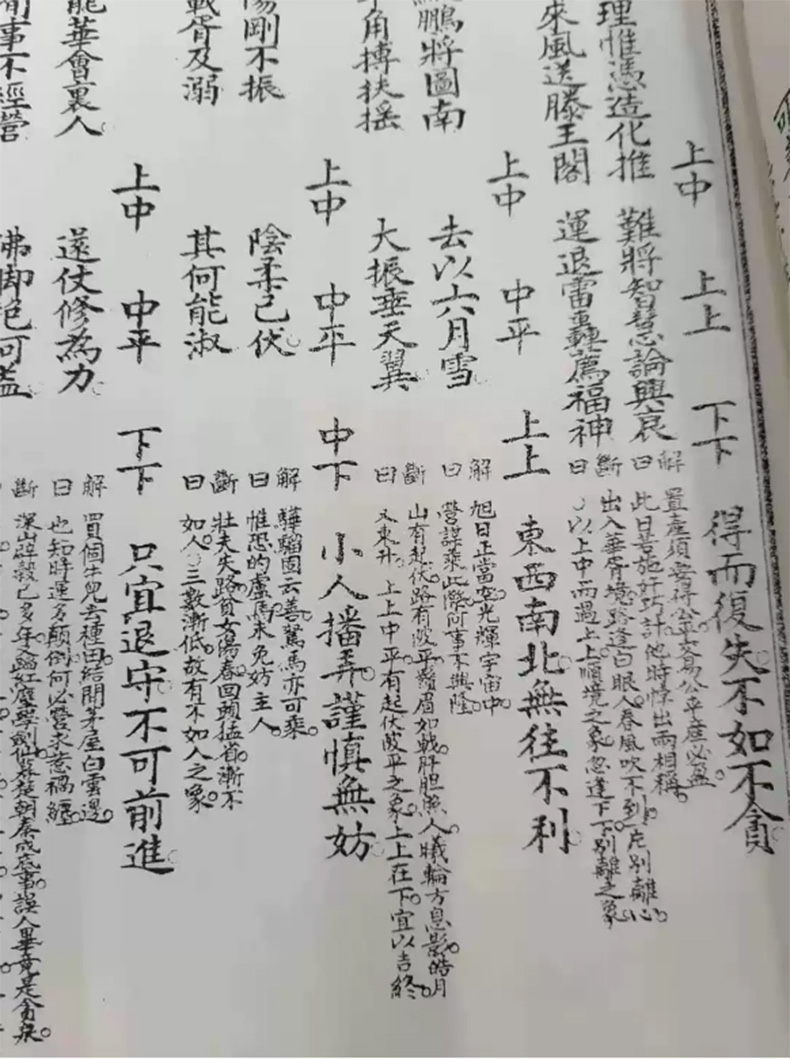 上中　上上　下下　得而復失不如不貪
理惟憑造化推　難將智慧論興衰
來風送滕王閣　運退雷轟薦福神
解曰
置產須要得公平交易公平產必盈
此日若施奸巧計他時悖出兩相稱
斷曰
出入華胥境路逢白眼人春風吹不到一片別離心
以上中而遇上上順境之象忽逢下下別離之象
上中　中平　上上　東西南北無往不利
鵬將圖南　去以六月雪
角搏扶搖　大振垂天翼
解曰
旭日正當空光輝宇宙中
營謀乘此際何事不興隆
斷曰
山有起伏路有陂平鬚眉如戟肝胆照人曦輪方息影皓月
又東升　上上中平有起伏陂平之象上上在下宜以吉終
上中　中平　中下　小人播弄謹慎無妨
陽剛不振　陰柔已伏
載胥及溺　其何能淑
解曰
驊騮固云善駑馬亦可乘
惟恐的盧馬未免妨主人
斷曰
壯夫失路貧女傷春回頭猛省漸不
如人　三數漸低故有不如人之象
上中　中平　下下　只宜退守不可前進
龍華會裏人　遂仗修為力
事不經營　佛即絕可盖
解曰
買個牛兒去種田結開茅屋白雲邊
也知時運多顛倒何必營求惹禍纏
斷
深山辟穀已多年又踏紅塵學劍仙暮楚朝秦成底事誤人畢竟是貪泉